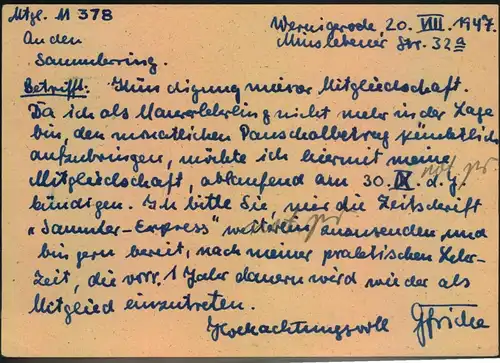 Mtgl. M 378
Wernigerode, 20. VIII. 1947.
An den
Minslebener Str. 32a
Sammlerring.
Betrifft: Kündigung meiner Mitgliedschaft.
Da ich als Maurerlehrling nicht mehr in der Lage
bin, den monatlichen Pauschalbetrag pünktlich
aufzubringen, möchte ich hiermit meine
Mitgliedschaft, ablaufend am 30. IX. d. J.
kündigen. Ich bitte Sie, mir die Zeitschrift
"Sammler-Express" weiterhin zuzusenden und
bin gern bereit, nach meiner praktischen Lehr-
Zeit, die vorr. 1 Jahr dauern wird wieder als
Mitglied einzutreten.
Hochachtungsvoll